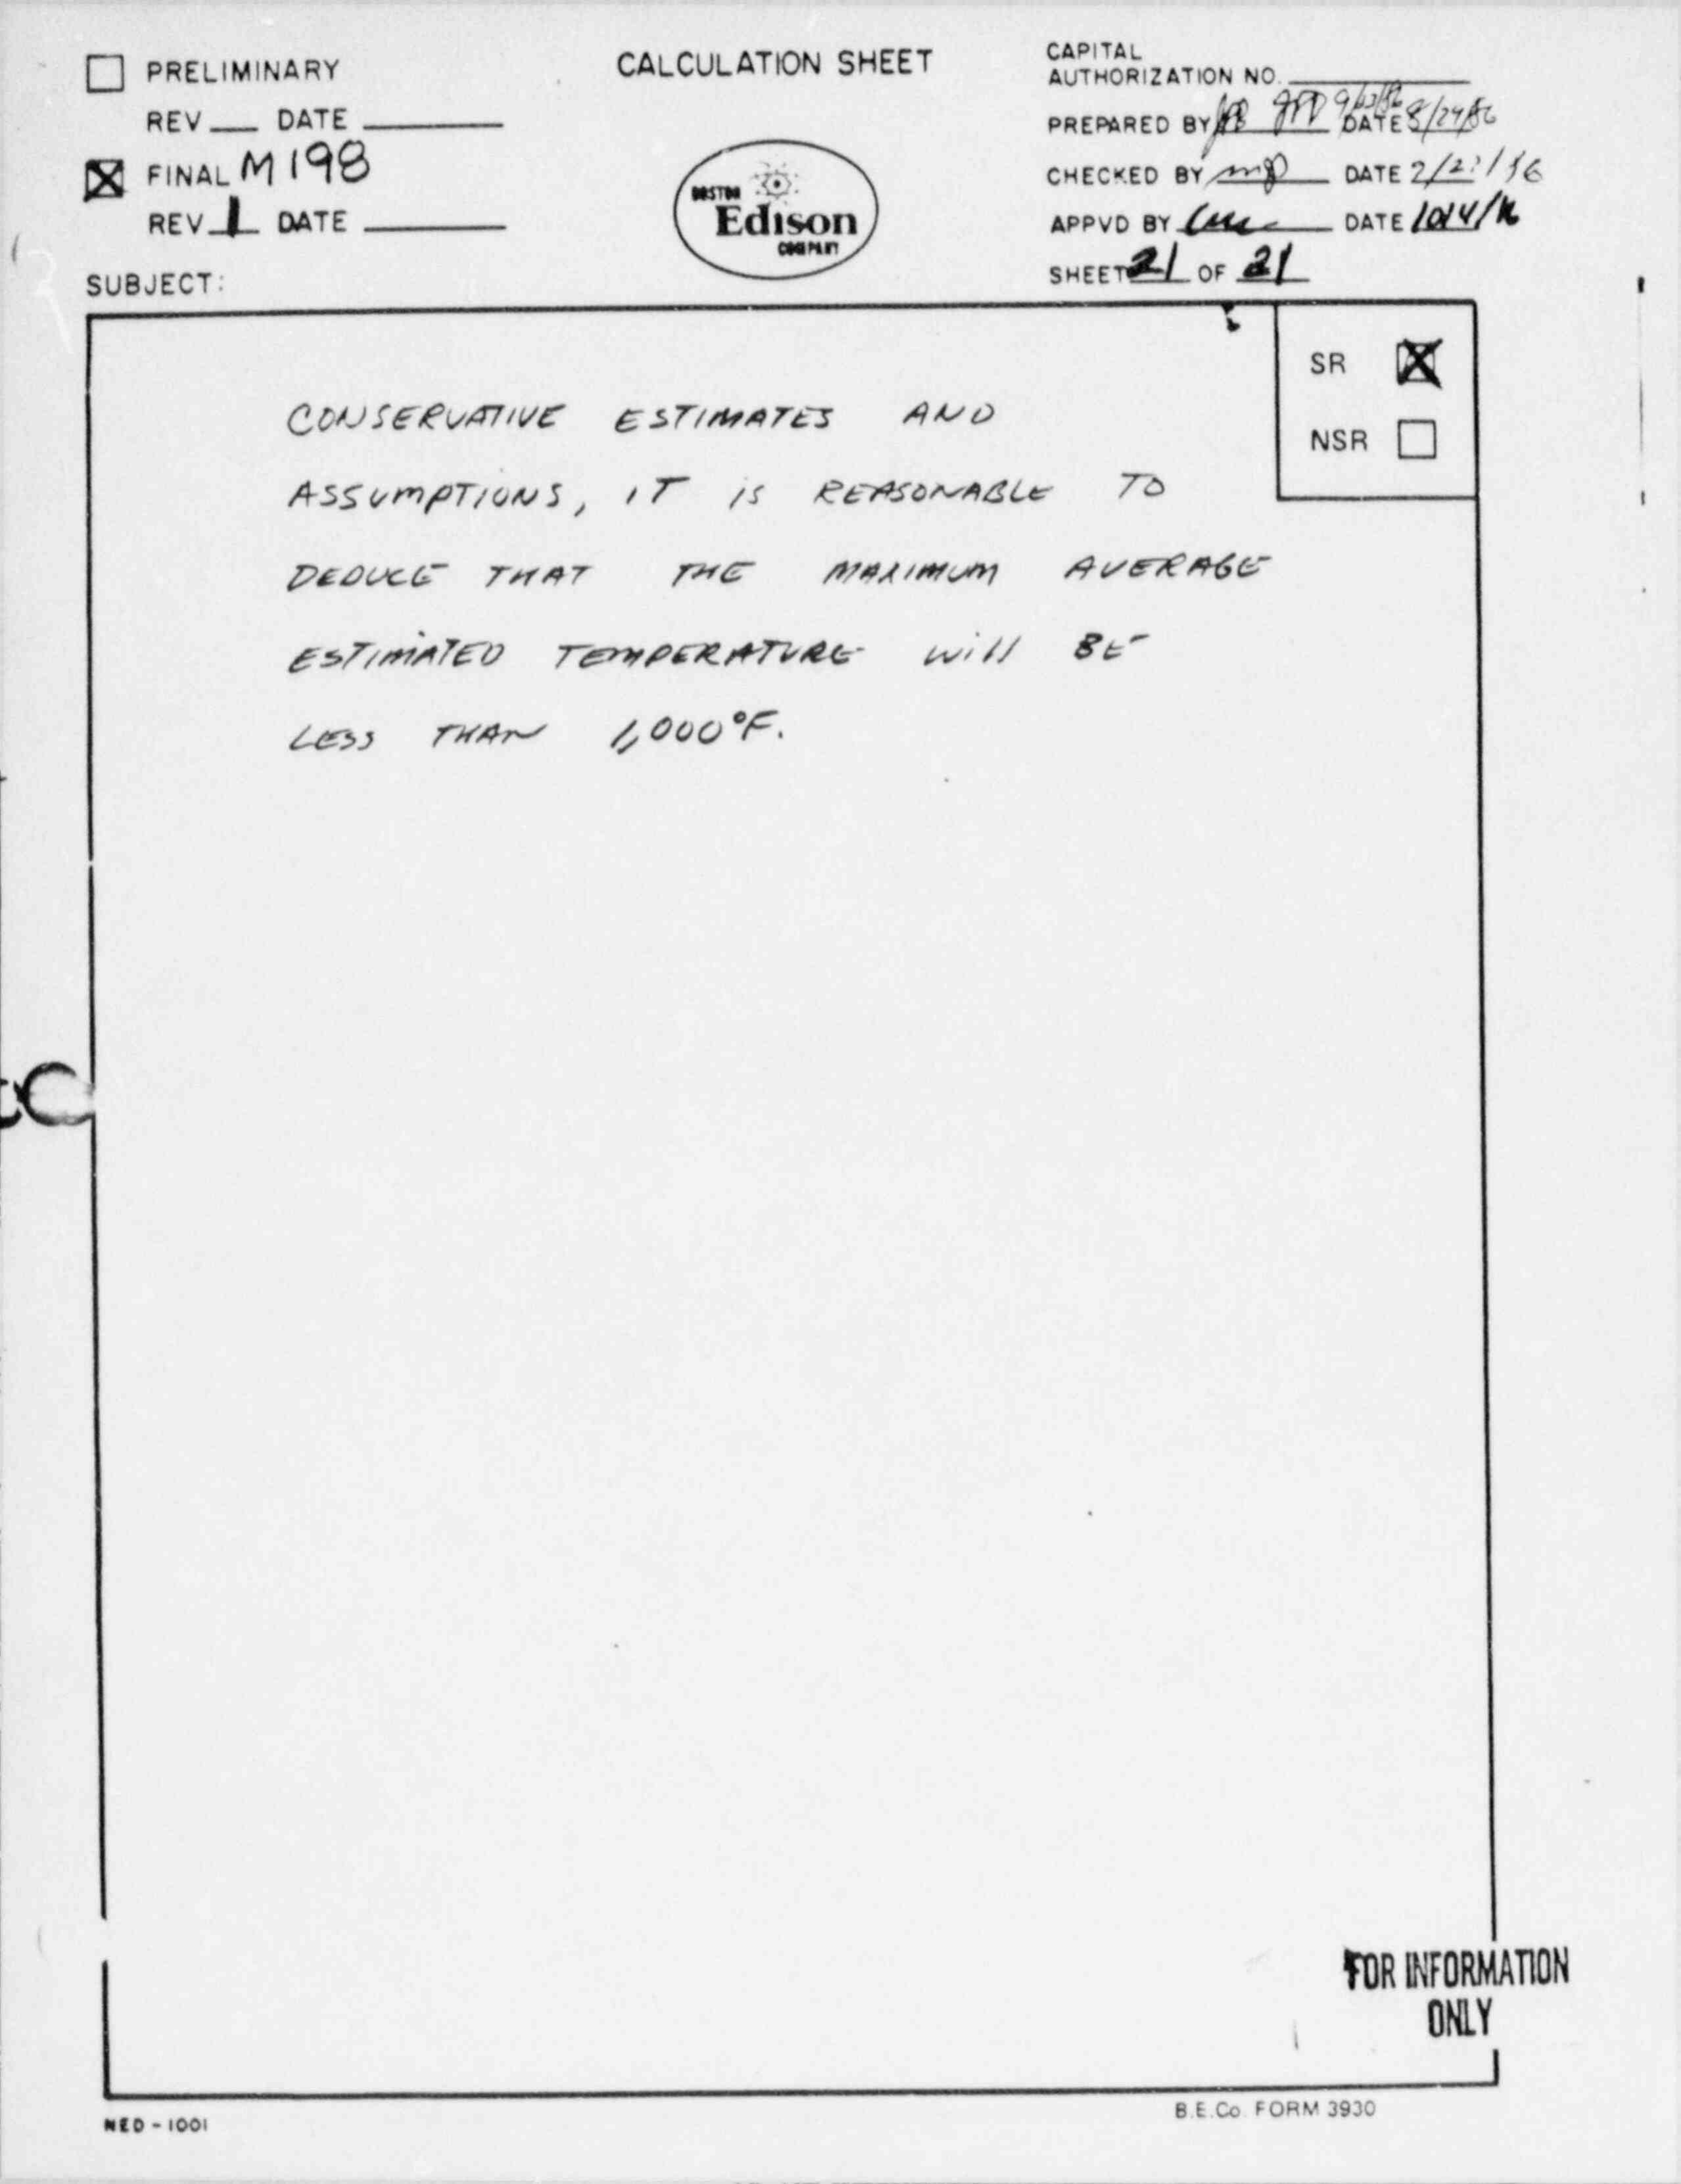 PRELIMINARY
REV DATE
FINAL M198
REV 1 DATE
SUBJECT:
CALCULATION SHEET
BOSTON
Edison
COMPANY
CAPITAL
AUTHORIZATION NO.
PREPARED BY DATE 8/24/86
CHECKED BY DATE
APPVD BY DATE
SHEET 21 OF 21
SR
NSR
CONSERVATIVE ESTIMATES AND
ASSUMPTIONS, IT IS REASONABLE TO
DEDUCE THAT THE MAXIMUM AVERAGE
ESTIMATED TEMPERATURE WILL BE
LESS THAN 1,000°F.
FOR INFORMATION
ONLY
NED-1001
B.E.Co. FORM 3930